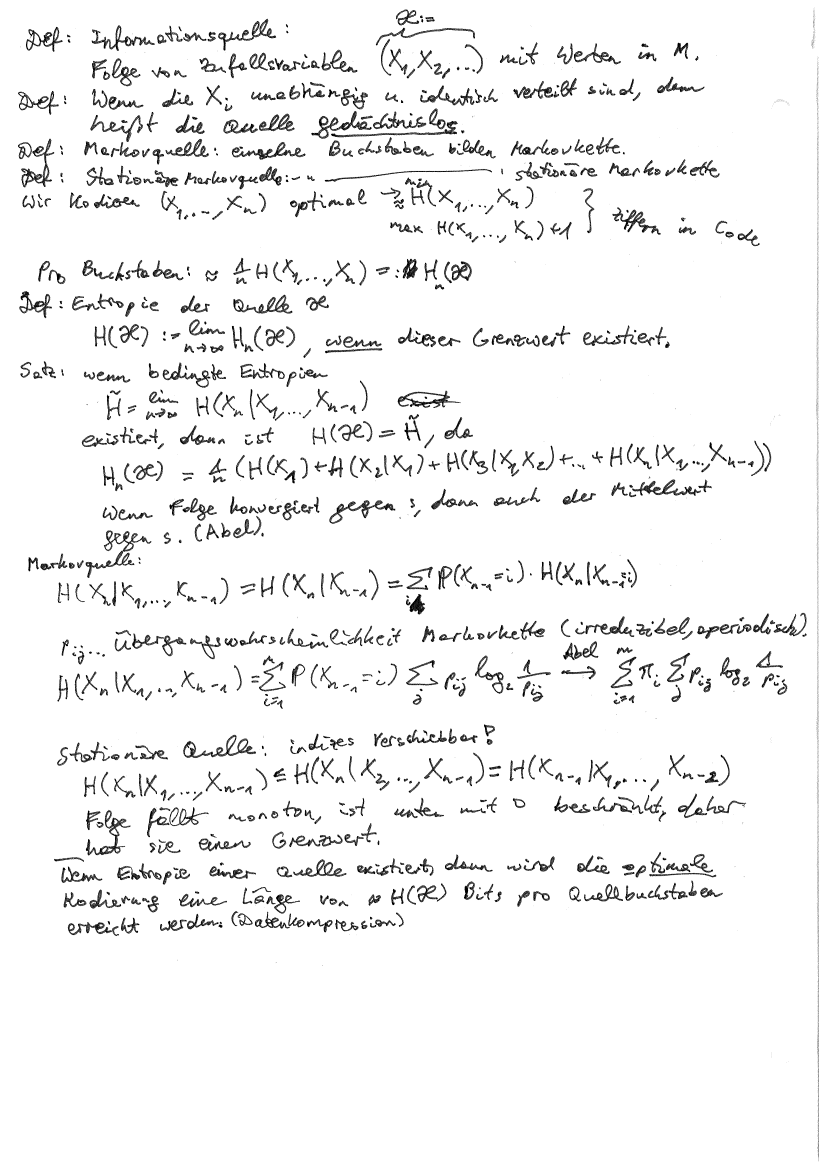 𝒳:=
Def: Informationsquelle:
Folge von Zufallsvariablen (X₁,X₂,...) mit Werten in M.
Def: Wenn die Xᵢ unabhängig u. identisch verteilt sind, dann
heißt die Quelle gedächtnislos.
Def: Markovquelle: einzelne Buchstaben bilden Markovkette.
Def: Stationäre Markovquelle: – " –––––– : stationäre Markovkette
Wir Kodieren (X₁,...,Xₙ) optimal → min ≈ H(X₁,...,Xₙ)
max H(X₁,...,Xₙ)+1 } Ziffern in Code
Pro Buchstaben: ≈ 1/n H(X₁,...,Xₙ) =: Hₙ(𝒳)
Def: Entropie der Quelle 𝒳
H(𝒳) := lim n→∞ Hₙ(𝒳), wenn dieser Grenzwert existiert.
Satz: wenn bedingte Entropien
H̃ = lim n→∞ H(Xₙ|X₁,...,Xₙ₋₁)
existiert, dann ist H(𝒳) = H̃, da
Hₙ(𝒳) = 1/n (H(X₁)+H(X₂|X₁)+H(X₃|X₁X₂)+...+H(Xₙ|X₁,...,Xₙ₋₁))
wenn Folge konvergiert gegen s, dann auch der Mittelwert
gegen s. (Abel).
Markovquelle:
H(Xₙ|X₁,...,Xₙ₋₁) = H(Xₙ|Xₙ₋₁) = Σᵢ ℙ(Xₙ₋₁=i)·H(Xₙ|Xₙ₋₁=i)
pᵢⱼ... Übergangswahrscheinlichkeit Markovkette (irreduzibel, aperiodisch).
H(Xₙ|X₁,...,Xₙ₋₁) = Σᵢ₌₁ᵐ ℙ(Xₙ₋₁=i) Σⱼ pᵢⱼ log₂ 1/pᵢⱼ →(Abel) Σᵢ₌₁ᵐ πᵢ Σⱼ pᵢⱼ log₂ 1/pᵢⱼ
Stationäre Quelle: indizes verschiebbar!
H(Xₙ|X₁,...,Xₙ₋₁) ≤ H(Xₙ|X₂,...,Xₙ₋₁) = H(Xₙ₋₁|X₁,...,Xₙ₋₂)
Folge fällt monoton, ist unten mit 0 beschränkt, daher
hat sie einen Grenzwert.
Wenn Entropie einer Quelle existiert, dann wird die optimale
Kodierung eine Länge von ≈ H(𝒳) Bits pro Quellbuchstaben
erreicht werden. (Datenkompression)